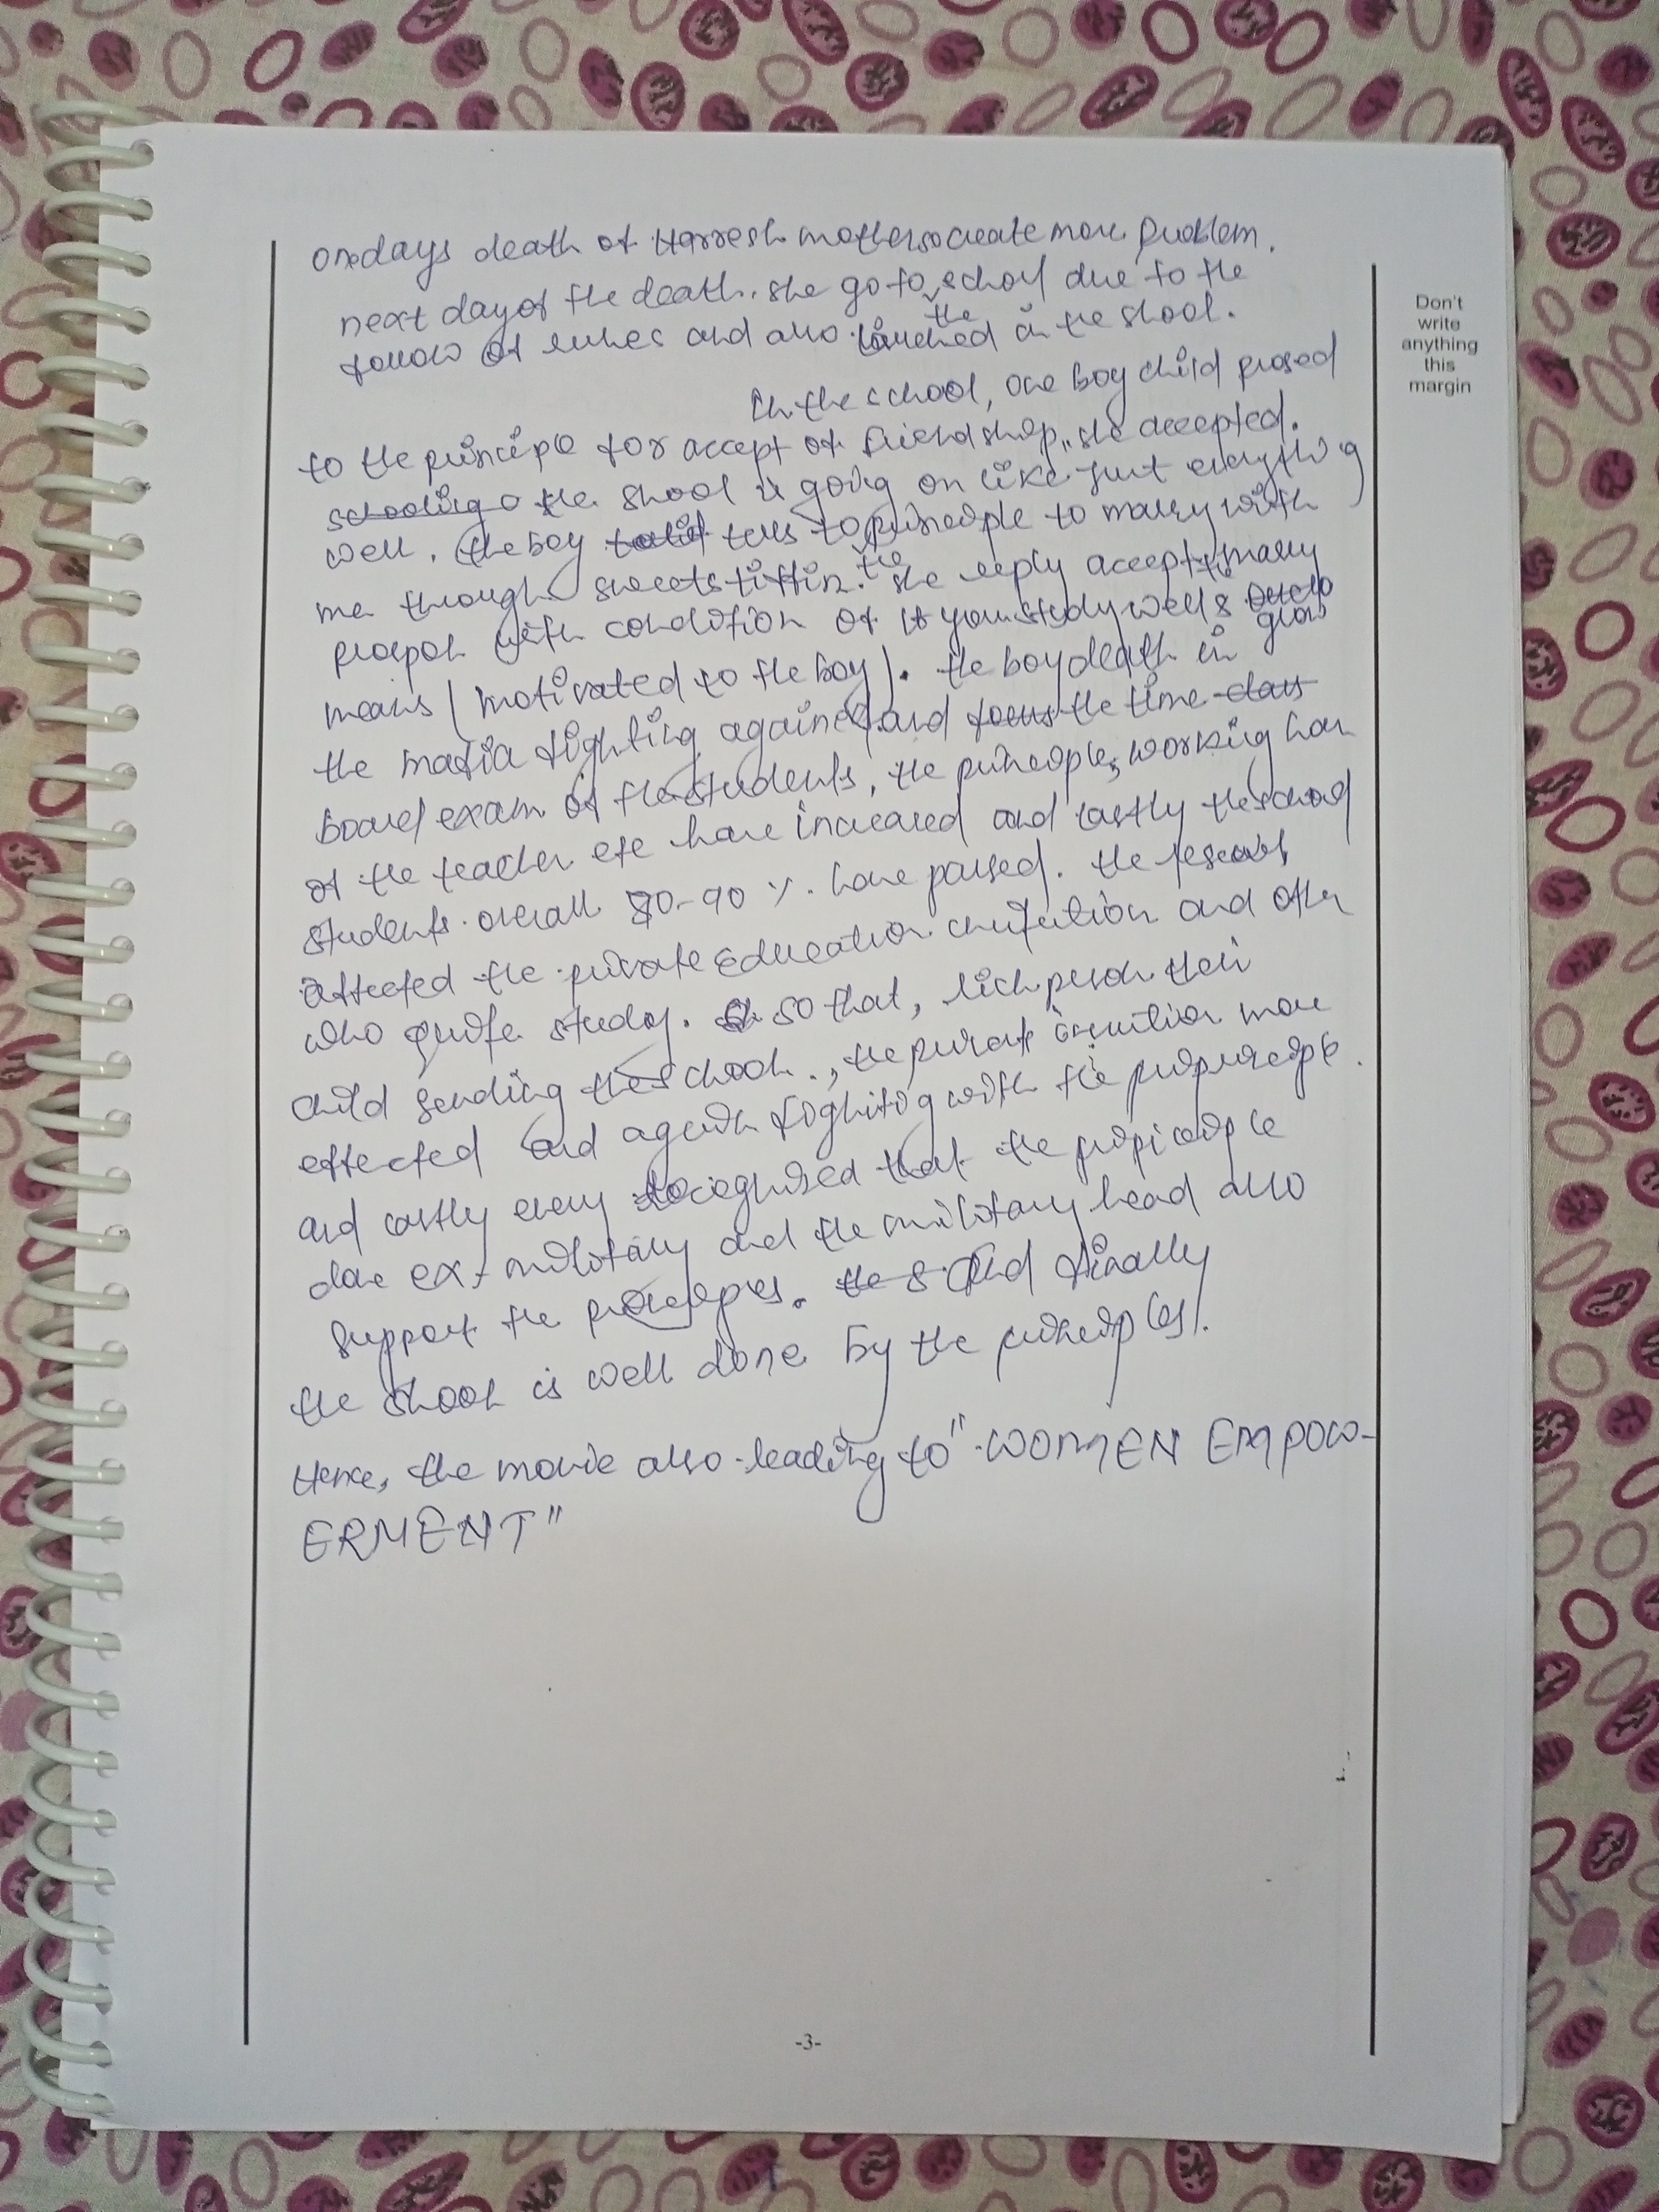 one days death of Harresh mother so create more problem.
next day of the death. she go to school due to the
follow of rules and also the launched in the shool.
In the school, one boy child prosed
to the principle for accept of friendshop,, she accepted.
schooling o the shool is going on like just everything
well. the boy tells to principle to marry with
me through sweets tiffin. the she reply accept the marry
proposh with condition of if you study well &
grow
means (motivated to the boy). the boy death in
the mafia fighting againest and focus the time class
board exam of the students, the principles working hav
of the teacher etc have increased and lastly the school
students overall 80-90 %. have passed. the
affected the private Education and other
who quite study. so that, rich person their
child sending the school., the privat more
effected and again fighitog with the
and lastly every recognised that the
ex-military and the military head also
support the the s And finally
the shool is well done by the principles.
Hence, the movie also leading to "WOMEN EMPOW-
ERMENT"
Don't
write
anything
this
margin
-3-